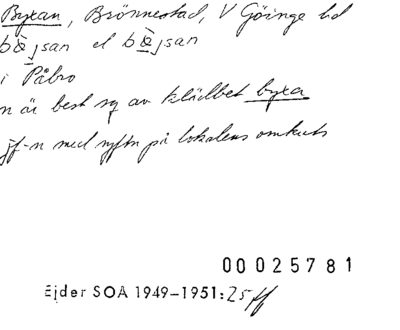 Byxan, Brönnestad, V Göinge hd
i Påbro
n är best sg av klädbet byxa
jf-n med syftn på lokalens omkrets
00025781
Ejder SOA 1949–1951: 25 ff